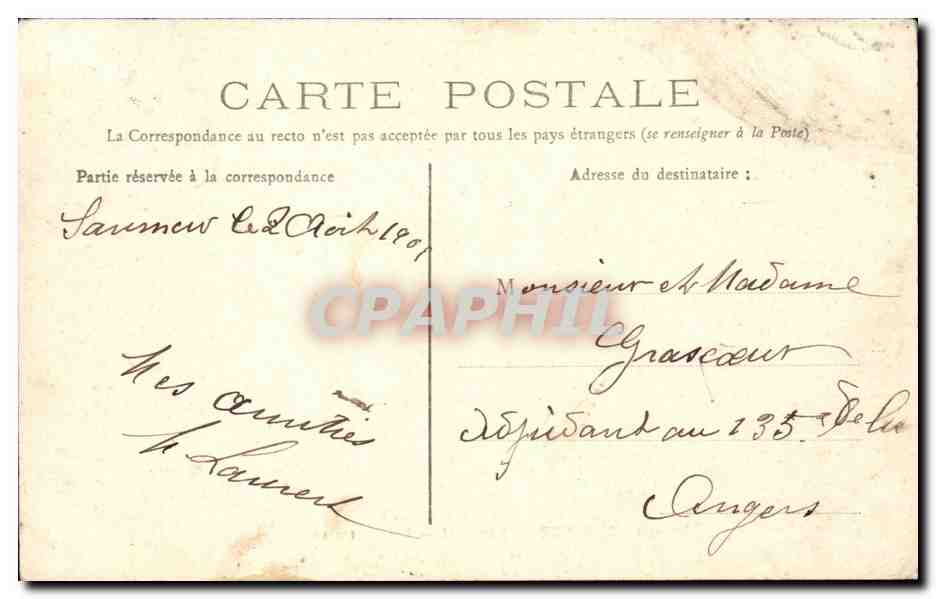 CARTE POSTALE
La Correspondance au recto n'est pas acceptée par tous les pays étrangers (se renseigner à la Poste)
Partie réservée à la correspondance
Saumur le 2 Août 190
Mes amitiés
Laurent
Adresse du destinataire :
Monsieur et Madame
Grascoeur
Adjudant au 135e de
Angers
CPAPHIL